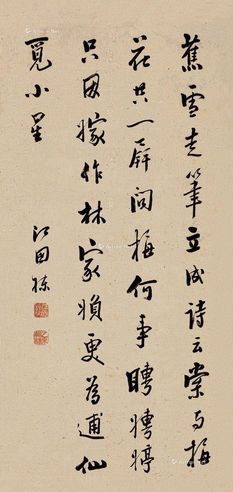 蕉雪走筆立成詩云棠与梅
花共一屏问梅何事聘娉婷
只因嫁作林家婦更為逋仙
覓小星
江国栋